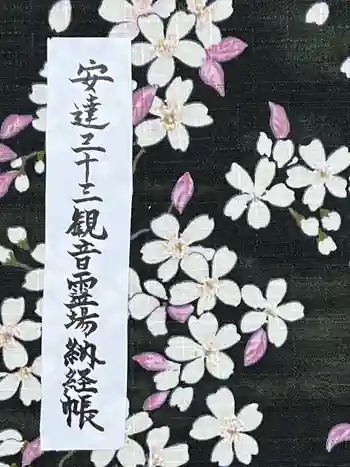 安達三十三観音霊場納経帳